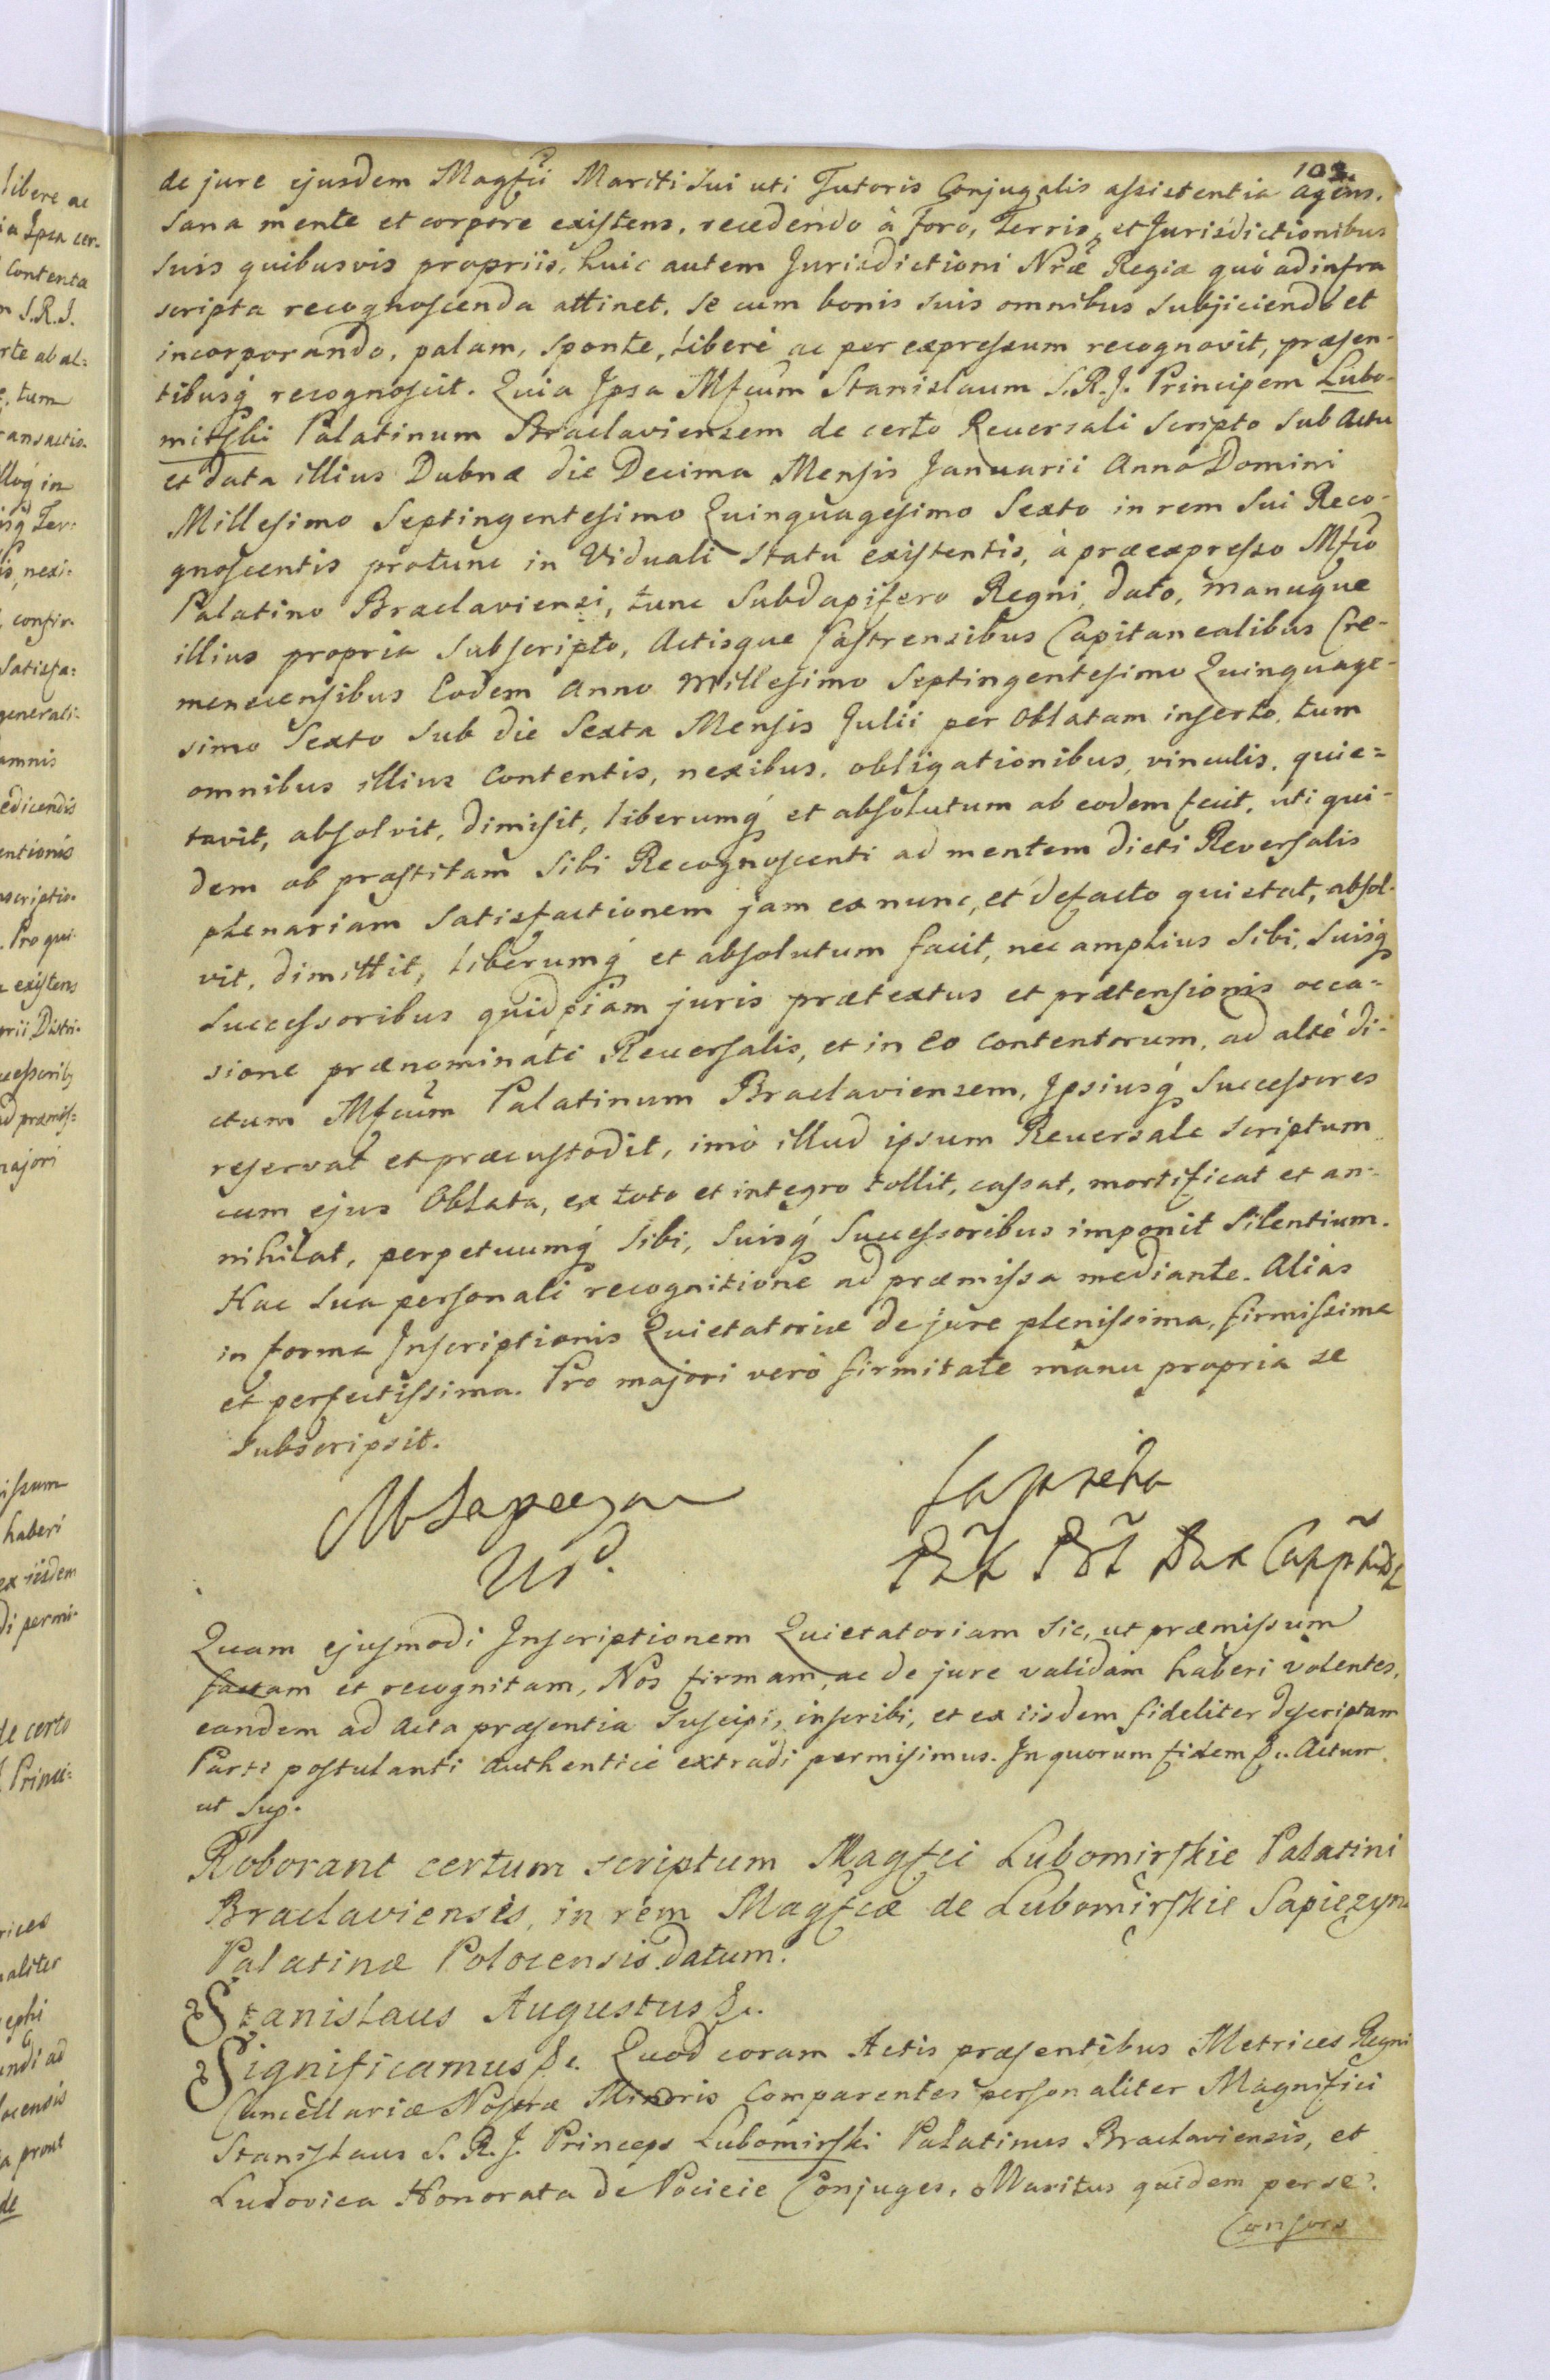 103.
de jure ejusdem Magfci Mariti sui uti Tutoris Conjugalis assistentia agens.
Sana mente et corpore existens, recedendo à foro, Terris, et Jurisdictionibus
suis quibusvis propriis, huic autem Jurisdictioni Nræ Regiæ quò ad infra
scripta recognoscenda attinet, se cum bonis suis omnibus subjiciendo et
incorporando, palam, sponte, liberè ac per expressum recognovit, præsen-
tibusq́ recognoscit. Quia Ipsa Mfcum Stanislaum S.R.J. Principem Lubo-
mirski Palatinum Braclaviensem de certo Reversali Scripto sub Actu
et data illius Dubnæ die Decima Mensis Januarii Anno Domini
Millesimo Septingentesimo Quinquagesimo Sexto in rem sui Reco-
gnoscentis protunc in Viduali statu existentis, à præexpresso Mfco
Palatino Braclaviensi, tunc Subdapifero Regni, dato, manuque
illius propria subscripto, Actisque Castrensibus Capitanealibus Cre-
menecensibus Eodem Anno Millesimo Septingentesimo Quinquage-
simo Sexto sub die Sexta Mensis Julii per Oblatam inserto, tum
omnibus illius Contentis, nexibus, obligationibus, vinculis, quie=
tavit, absolvit, dimisit, liberumq́ et absolutum ab eodem fecit, uti qui-
dem ob præstitam sibi Recognoscenti ad mentem dicti Reversalis
plenariam satisfactionem jam ex nunc, et defacto quietat, absol-
vit, dimittit, liberumq́ et absolutum facit, nec amplius sibi, suisq́
Successoribus quidpiam juris prætextus et prætensionis occa=
sione prænominati Reversalis, et in eo Contentorum, ad altè di-
ctum Mfcum Palatinum Braclaviensem, Ipsiusq́ Successores
reservat et præcustodit, imò illud ipsum Reversale scriptum
cum ejus Oblata, ex toto et integro tollit, cassat, mortificat et an-
nihilat, perpetuumq́ sibi, suisq́ Successoribus imponit Silentium.
Hac sua personali recognitione ad præmissa mediante. Alias
in forma Inscriptionis Quietatoriæ de jure plenissima, firmissima
et perfectissima. Pro majori verò firmitate manu propria se
subscripsit.
MSapiezyna
Sapieha
Quam ejusmodi Inscriptionem Quietatoriam sic, ut præmissum
factam et recognitam, Nos firmam, ac de jure validam haberi volentes,
eandem ad Acta præsentia Suscipi, inscribi, et ex iisdem fideliter descriptam
Parti postulanti Authenticè extradi permisimus. In quorum fidem &c. Actum
ut Sup.
Roborant certum scriptum Magfci Lubomirskie Palatini
Braclaviensis, in rem Magfcæ de Lubomirskie Sapiezyna
Palatinæ Polocensis datum.
Stanislaus Augustus &c.
Significamus &c. Quod coram Actis præsentibus Metrices Regni
Cancellariæ Nostræ Minoris Comparentes personaliter Magnifici
Stanislaus S. R. J. Princeps Lubomirski Palatinus Braclaviensis, et
Ludovica Honorata de Pocieie Conjuges, Maritus quidem per se.
Consors
libere ac
ia Ipsa cer-
Contenta
S.R.J.
rte ab al=
tum
ransactio-
in
Ter:
nexi:
confir-
Satisfa:
generali:
omnis
edicendis
entionis
scriptio-
Pro qui-
existens
Distri-
cessorib
præmis=
majori
issum
haberi
ex iisdem
di permi-
de certo
Princi:
rices
naliter
ephi
endi ad
locensis
prout
de